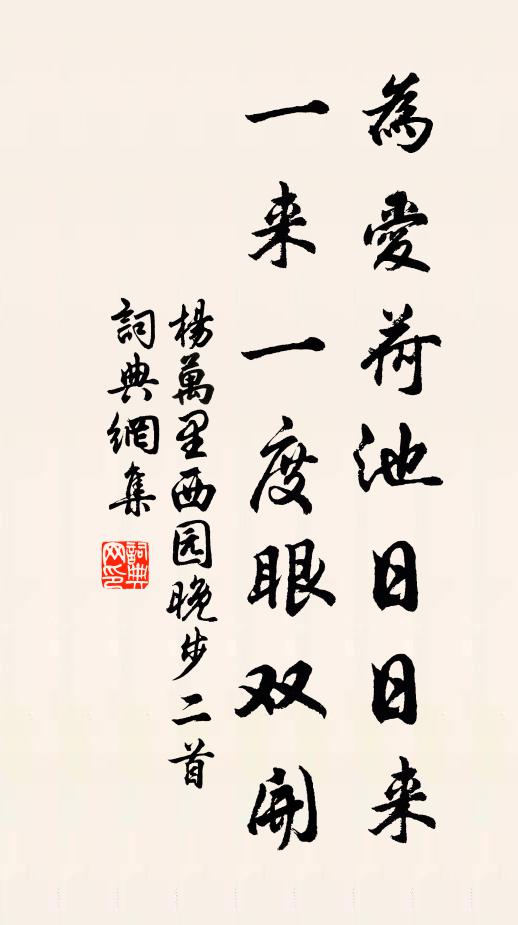 為愛荷池日日来
一来一度眼双開
楊萬里西园晚步二首
詞典網集
詞典
网印